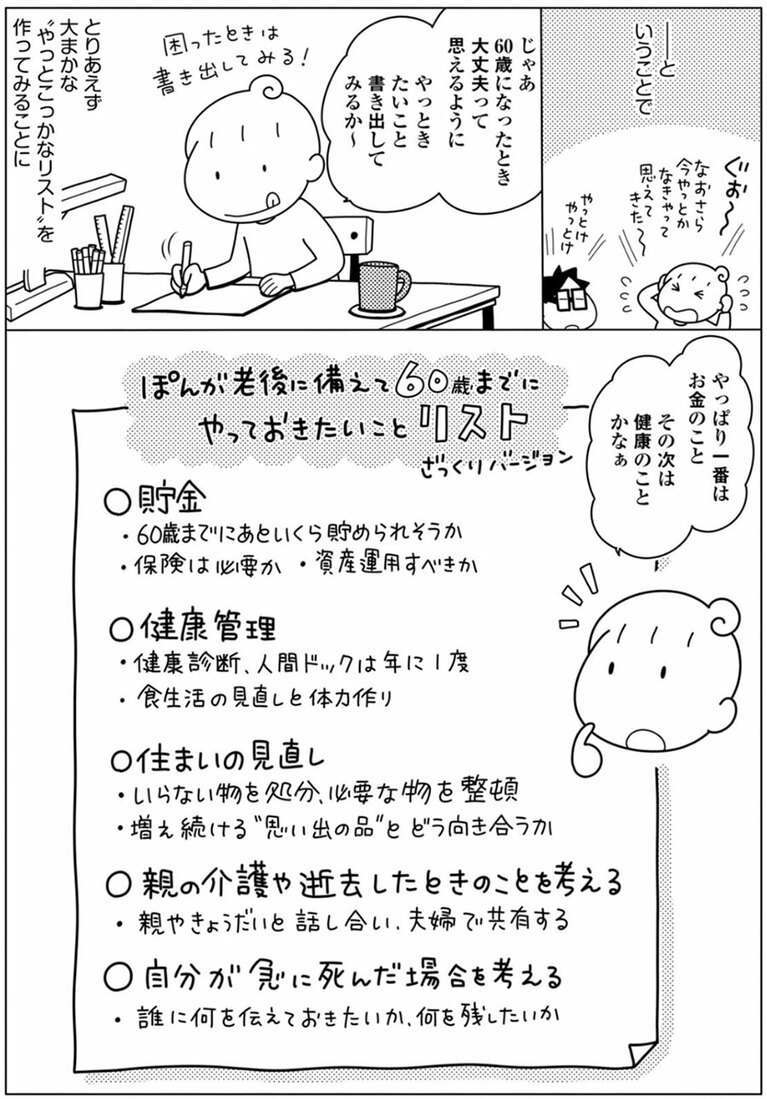 ――と
いうことで
ぐぉ〜
なおさら
今やっとか
なきゃって
思えて
きた〜
やっとけ
やっとけ
じゃあ
60歳になったとき
大丈夫って
思えるように
やっとき
たいこと
書き出して
みるか〜
困ったときは
書き出してみる!
とりあえず
大まかな
“やっとこっかなリスト”を
作ってみることに
やっぱり一番は
お金のこと
その次は
健康のこと
かなぁ
ぽんが老後に備えて60歳までに
やっておきたいことリスト
ざっくりバージョン
○貯金
・60歳までにあといくら貯められそうか
・保険は必要か ・資産運用すべきか
○健康管理
・健康診断、人間ドックは年に1度
・食生活の見直しと体力作り
○住まいの見直し
・いらない物を処分、必要な物を整頓
・増え続ける“思い出の品”とどう向き合うか
○親の介護や逝去したときのことを考える
・親やきょうだいと話し合い、夫婦で共有する
○自分が急に死んだ場合を考える
・誰に何を伝えておきたいか、何を残したいか